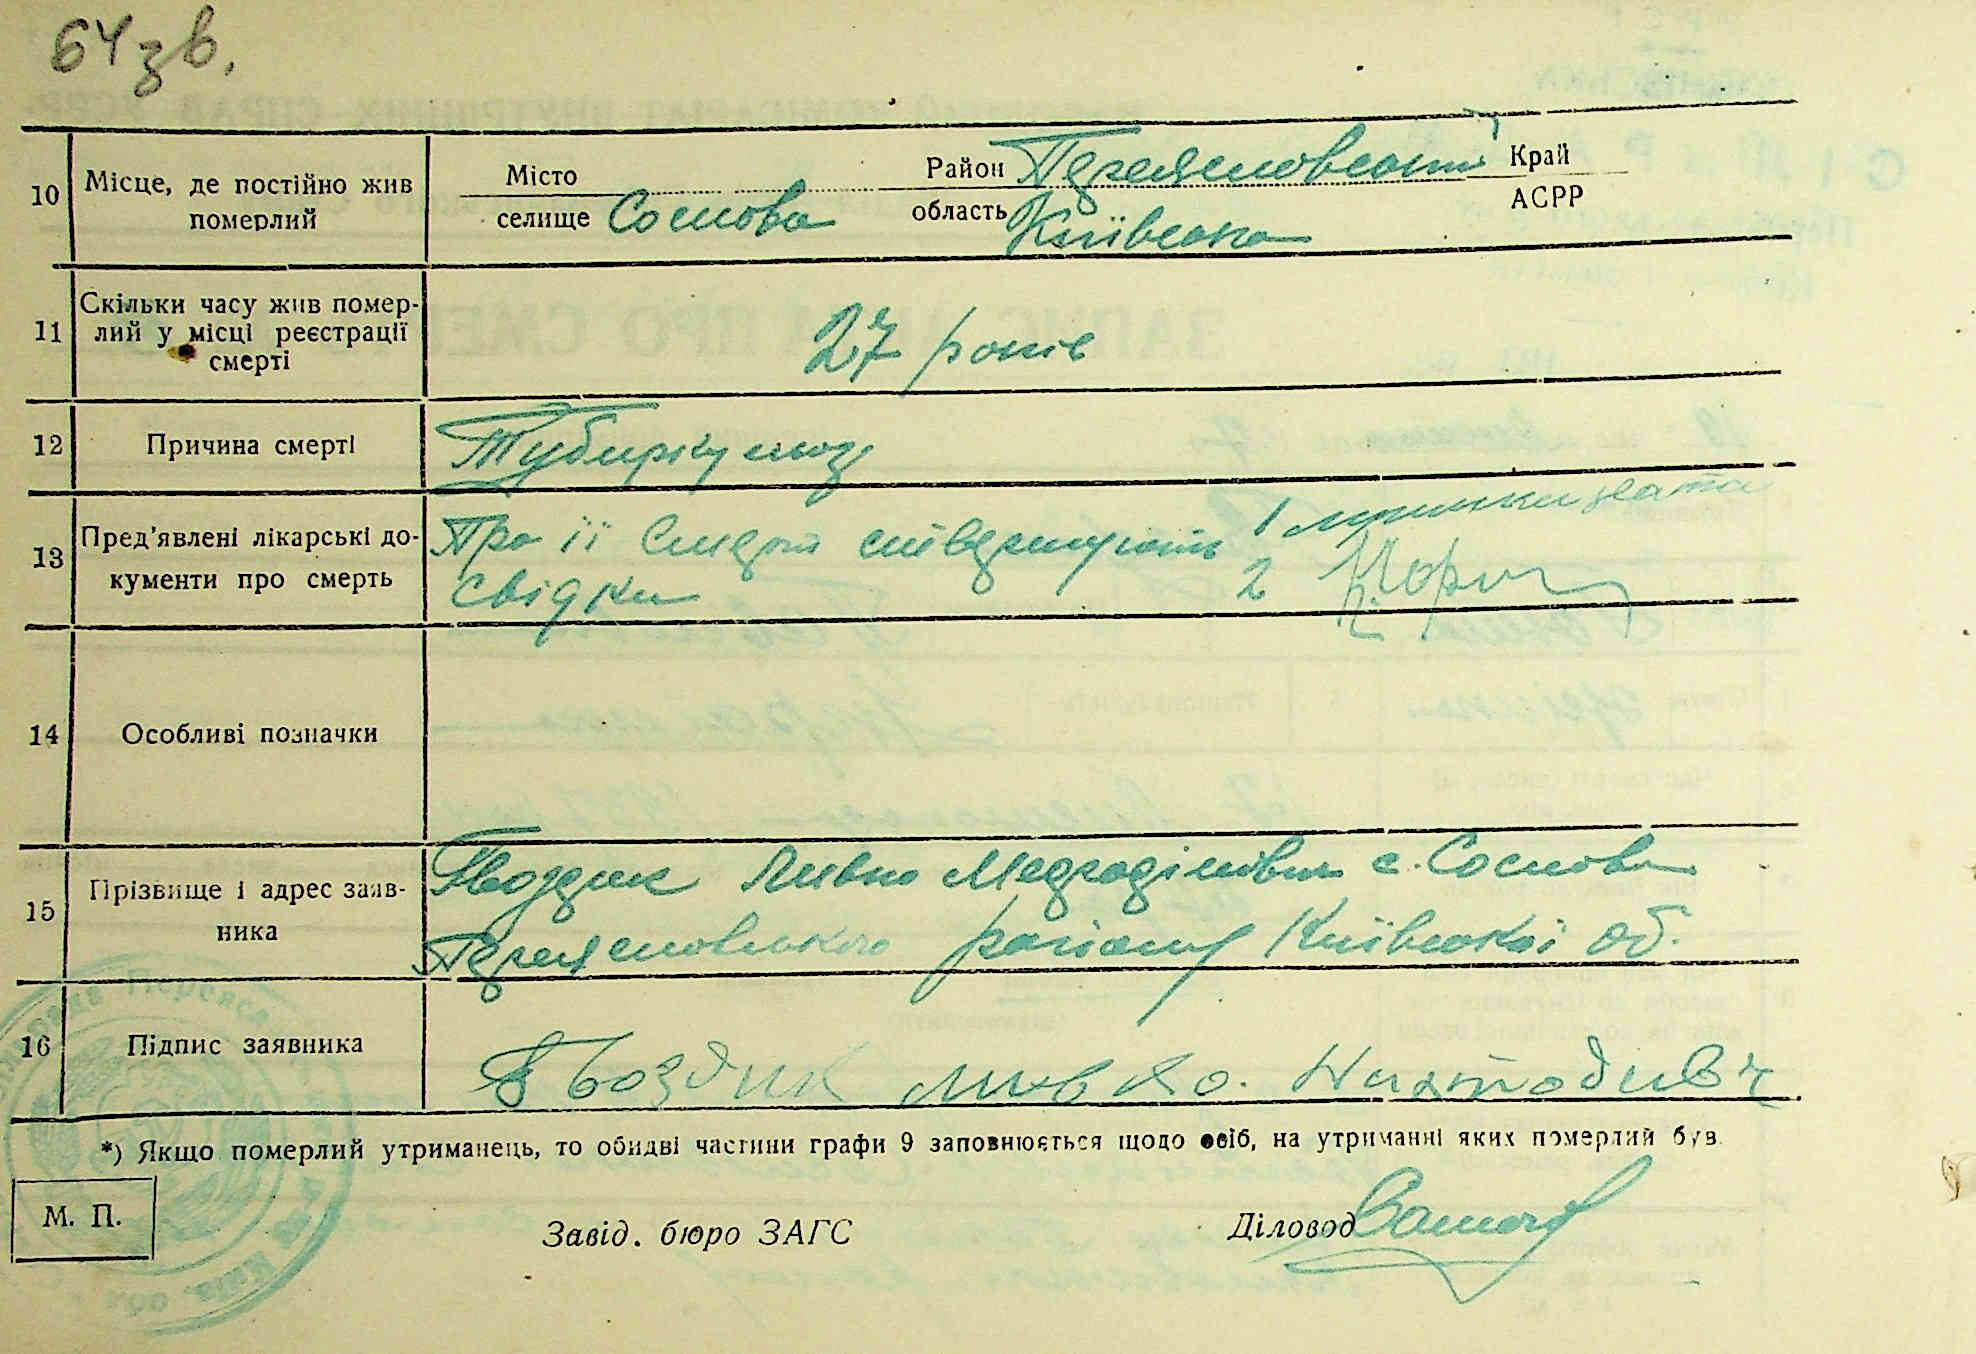 64 зв.
10 Місце, де постійно жив померлий
Місто
селище Соснова
Район Переяславський
область Київська
Край
АСРР
11 Скільки часу жив помер-
лий у місці реєстрації
смерті
27 років
12 Причина смерті
Тубиркульоз
13 Пред'явлені лікарські до-
кументи про смерть
Про її смерть стверджують 1
свідки 2
14 Особливі позначки
15 Прізвище і адрес заяв-
ника
Гвоздик Явно с. Соснова
Переяславського району Київської об.
16 Підпис заявника
Гвоздик
*) Якщо померлий утриманець, то обидві частини графи 9 заповнюється щодо осіб, на утриманні яких померлий був.
М. П.
Завід. бюро ЗАГС
Діловод